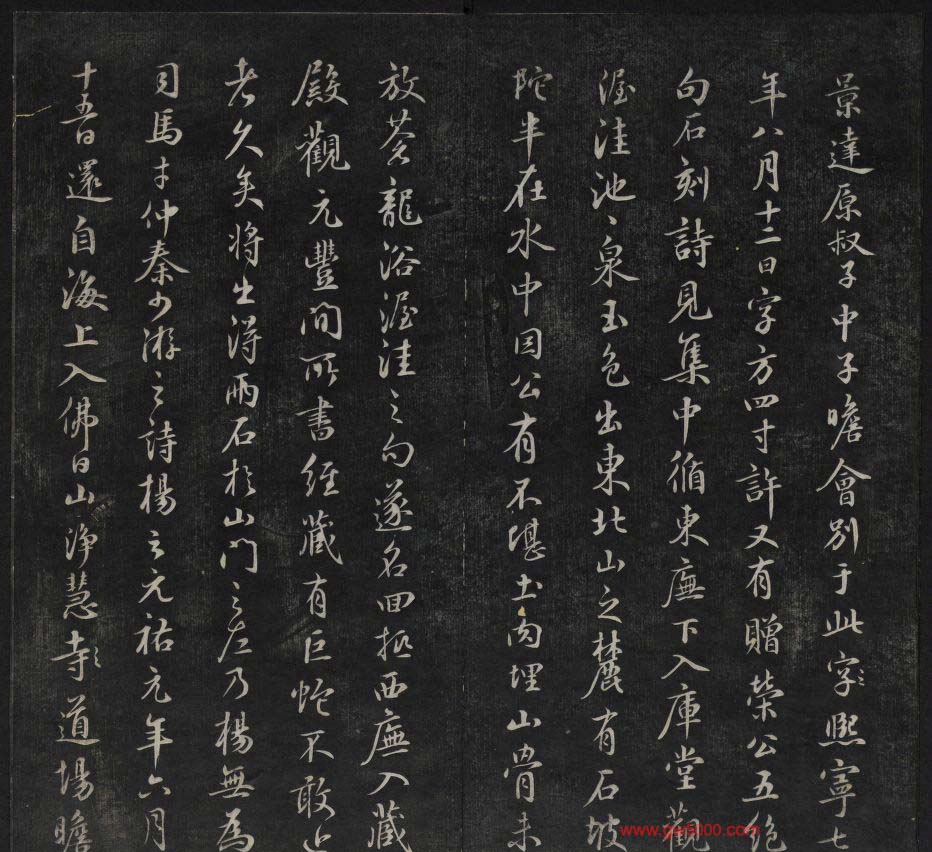 景達原叔子中子瞻會別于此字々熙寧七
年八月十二日字方四寸許又有贈榮公五絶
句石刻詩見集中循東廡下入庫堂觀
渥洼池々泉玉色出東北山之麓有石坡
陀半在水中因公有不堪土肉埋山骨未
放蒼龍浴渥洼之句遂名回抵西廡入藏
殿觀元豐間所書經藏有巨蛇不敢近
者久矣將出得兩石於山門之左乃楊無為
司馬才仲秦少游之詩楊云元祐元年六月
十五日還自海上入佛日山淨慧寺々道場瞻
www.gw5000.com